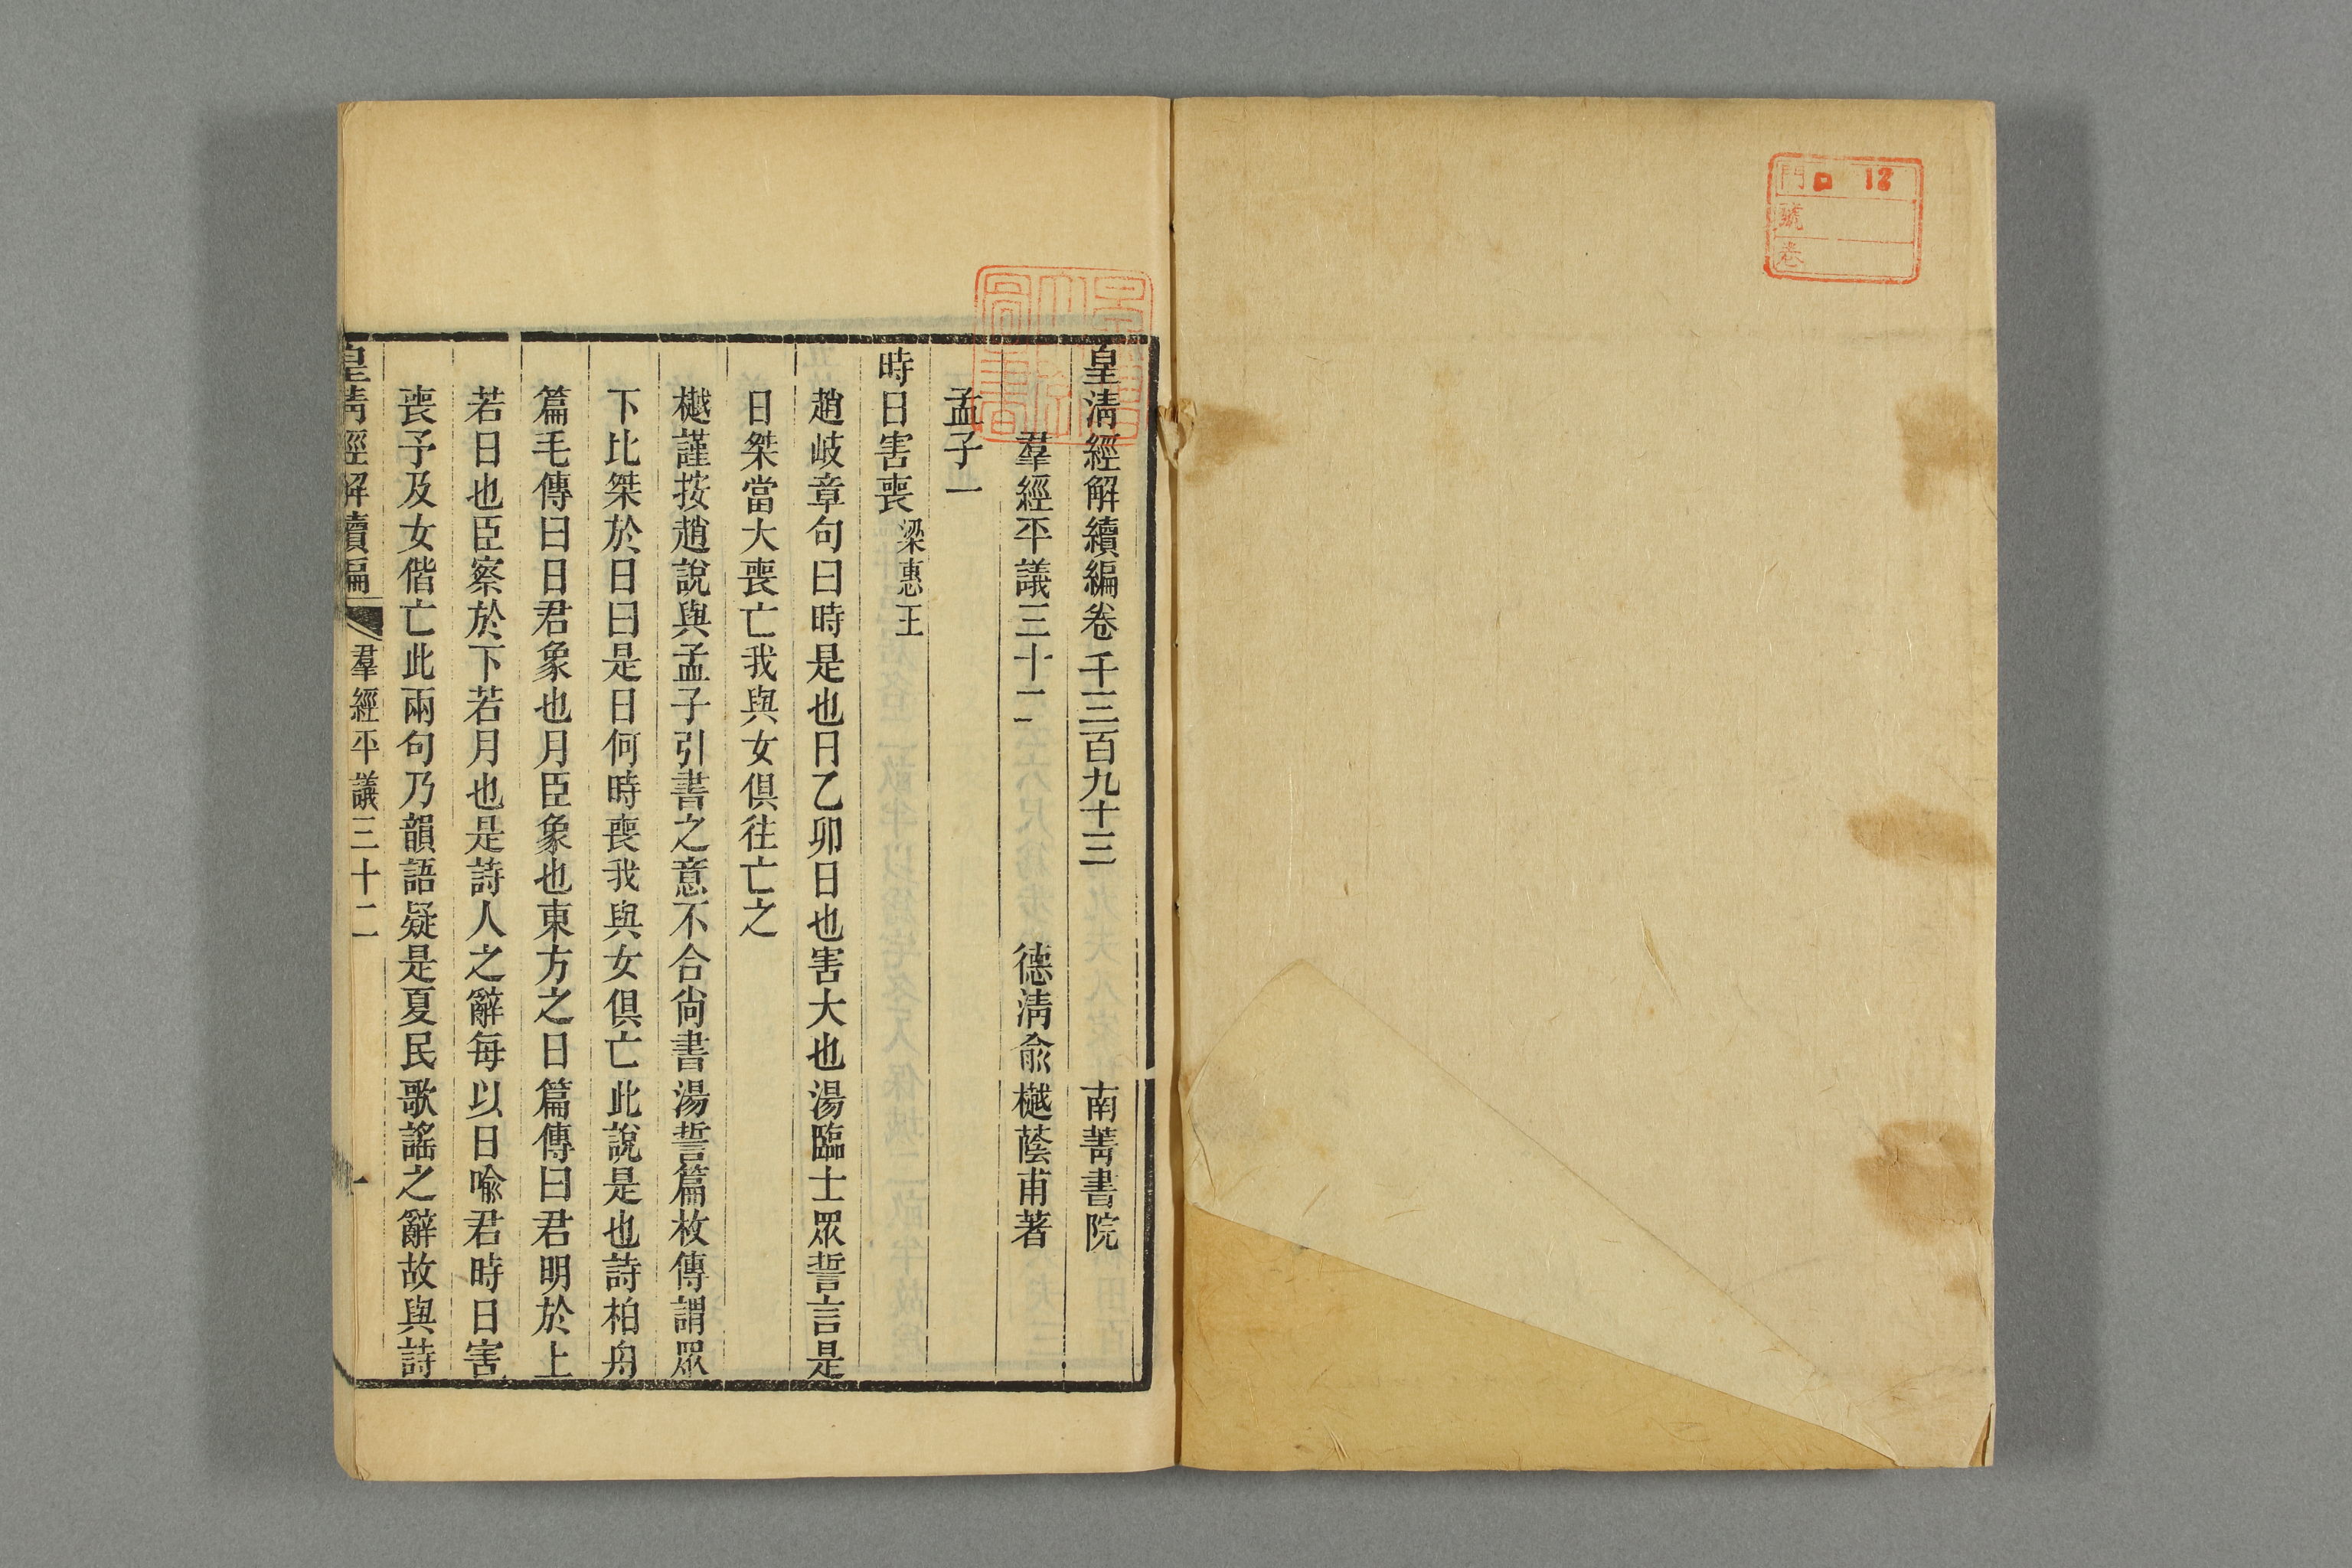 門 口 12
號
卷
皇清經解續編卷千三百九十三 南菁書院
羣經平議三十二 德清俞樾蔭甫著
孟子一
時日害喪 梁惠王
趙岐章句曰時是也日乙卯日也害大也湯臨士眾誓言是
日桀當大喪亡我與女俱往亡之
樾謹按趙說與孟子引書之意不合尙書湯誓篇枚傳謂眾
下比桀於日曰是日何時喪我與女俱亡此說是也詩柏舟
篇毛傳曰日君象也月臣象也東方之日篇傳曰君明於上
若日也臣察於下若月也是詩人之辭每以日喩君時日害
喪予及女偕亡此兩句乃韻語疑是夏民歌謠之辭故與詩
皇清經解續編 羣經平議三十二 一